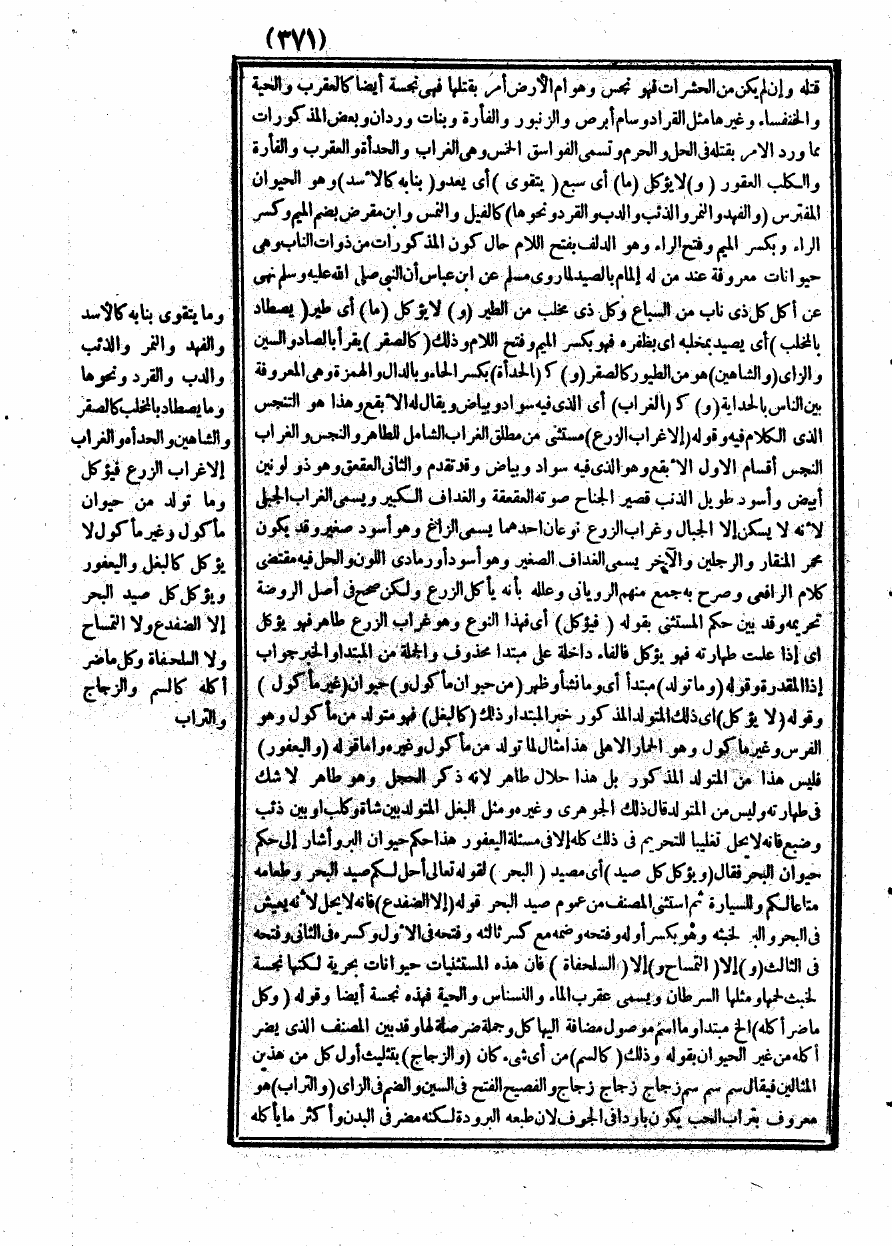 (٣٧١)
قتله وإن لم يكن من الحشرات فهو نجس وهوام الأرض أمر بقتلها فهى نجسة أيضا كالعقرب والحية
والخنفساء وغيرها مثل القراد وسام أبرص والزنبور والفأرة وبنات وردان وبعض المذكورات
مما ورد الامر بقتله فى الحل والحرم وتسمى الفواسق الخمس وهى الغراب والحدأة والعقرب والفأرة
والكلب العقور (و) لا يؤكل (ما) أى سبع (يتقوى) أى يعدو (بنابه كالأسد) وهو الحيوان
المفترس (والفهد والنمر والذئب والدب والقرد ونحوها) كالفيل والنمس وابن مقرض بضم الميم وكسر
الراء وبكسر الميم وفتح الراء وهو الدلف بفتح اللام حال كون المذكورات من ذوات الناب وهى
حيوانات معروفة عند من له إلمام بالصيد لما روى مسلم عن ابن عباس أن النبي صلى الله عليه وسلم نهى
عن أكل كل ذى ناب من السباع وكل ذى مخلب من الطير (و) لا يؤكل (ما) أى طير (يصطاد
بالمخلب) أى يصيد بمخلبه اى بظفره فهو بكسر الميم وفتح اللام وذلك (كالصقر) يقرأ بالصاد والسين
والزاى (والشاهين) هو من الطيور كالصقر (و) كـ (الحدأة) بكسر الحاء وبالدال والهمزة وهى المعروفة
بين الناس بالحداية (و) كـ (الغراب) أى الذى فيه سواد وبياض ويقال له الأبقع وهذا هو النجس
الذى الكلام فيه وقوله (إلا غراب الزرع) مستثنى من مطلق الغراب الشامل للطاهر والنجس والغراب
النجس أقسام الاول الأبقع وهو الذى فيه سواد وبياض وقد تقدم والثانى العقعق وهو ذو لونين
أبيض وأسود طويل الذنب قصير الجناح صوته العقعقة والغداف الكبير ويسمى الغراب الجبلى
لأنه لا يسكن إلا الجبال وغراب الزرع نوعان احدهما يسمى الزاغ وهو أسود صغير وقد يكون
محمر المنقار والرجلين والآخر يسمى الغداف الصغير وهو أسود أو رمادى اللون والحل فيه مقتضى
كلام الرافعى وصرح به جمع منهم الرويانى وعلله بأنه يأكل الزرع ولكن صحح فى أصل الروضة
تحريمه وقد بين حكم المستثنى بقوله (فيؤكل) أى فهذا النوع وهو غراب الزرع طاهر فهو يؤكل
اى إذا علمت طهارته فهو يؤكل فالفاء داخلة على مبتدا محذوف والجملة من المبتدا والخبر جواب
إذا المقدرة وقوله (وما تولد) مبتدأ أى وما نشأ وظهر (من حيوان مأكول و) حيوان (غير مأكول)
وقوله (لا يؤكل) اى ذلك المتولد المذكور خبر المبتدا وذلك (كالبغل) فهو متولد من مأكول وهو
الفرس وغير ماكول وهو الحمار الاهلى هذا مثال لما تولد من مأكول وغيره واما قوله (واليعفور)
فليس هذا من المتولد المذكور بل هذا حلال طاهر لانه ذكر الحجل وهو طاهر لا شك
فى طهارته وليس من المتولد قال ذلك الجوهرى وغيره ومثل البغل المتولد بين شاة وكلب او بين ذئب
وضبع فانه لا يحل تغليبا للتحريم فى ذلك كله إلا فى مسئلة اليعفور هذا حكم حيوان البر وأشار إلى حكم
حيوان البحر فقال (ويؤكل كل صيد) أى مصيد (البحر) لقوله تعالى أحل لكم صيد البحر وطعامه
متاعا لكم وللسيارة ثم استثنى المصنف من عموم صيد البحر قوله (إلا الضفدع) فانه لا يحل لأنه يعيش
فى البحر والبر لخبثه وهو بكسر أوله وفتحه وضمه مع كسر ثالثه وفتحه فى الأول وكسره فى الثانى وفتحه
فى الثالث (و) إلا (التمساح و) إلا (السلحفاة) فان هذه المستثنيات حيوانات بحرية لكنها نجسة
لخبث لحمها ومثلها السرطان ويسمى عقرب الماء والنسناس والحية فهذه نجسة أيضا وقوله (وكل
ما ضر أكله) الخ مبتدا وما اسم موصول مضافة اليها كل وجملة ضر صلة لها وقد بين المصنف الذى يضر
أكله من غير الحيوان بقوله وذلك (كالسم) من أى شىء كان (والزجاج) بتثليث أول كل من هذين
المثالين فيقال سم سم سم زجاج زجاج زجاج والفصيح الفتح فى السين والضم فى الزاى (والتراب) هو
معروف بتراب الحب يكون باردا فى الجوف لان طبعه البرودة لكنه مضر فى البدن وأكثر ما يأكله
وما يتقوى بنابه كالأسد
والفهد والنمر والذئب
والدب والقرد ونحوها
وما يصطاد بالمخلب كالصقر
والشاهين والحدأة والغراب
إلا غراب الزرع فيؤكل
وما تولد من حيوان
مأكول وغير مأكول لا
يؤكل كالبغل واليعفور
ويؤكل كل صيد البحر
إلا الضفدع ولا التمساح
ولا السلحفاة وكل ماضر
أكله كالسم والزجاج
والتراب